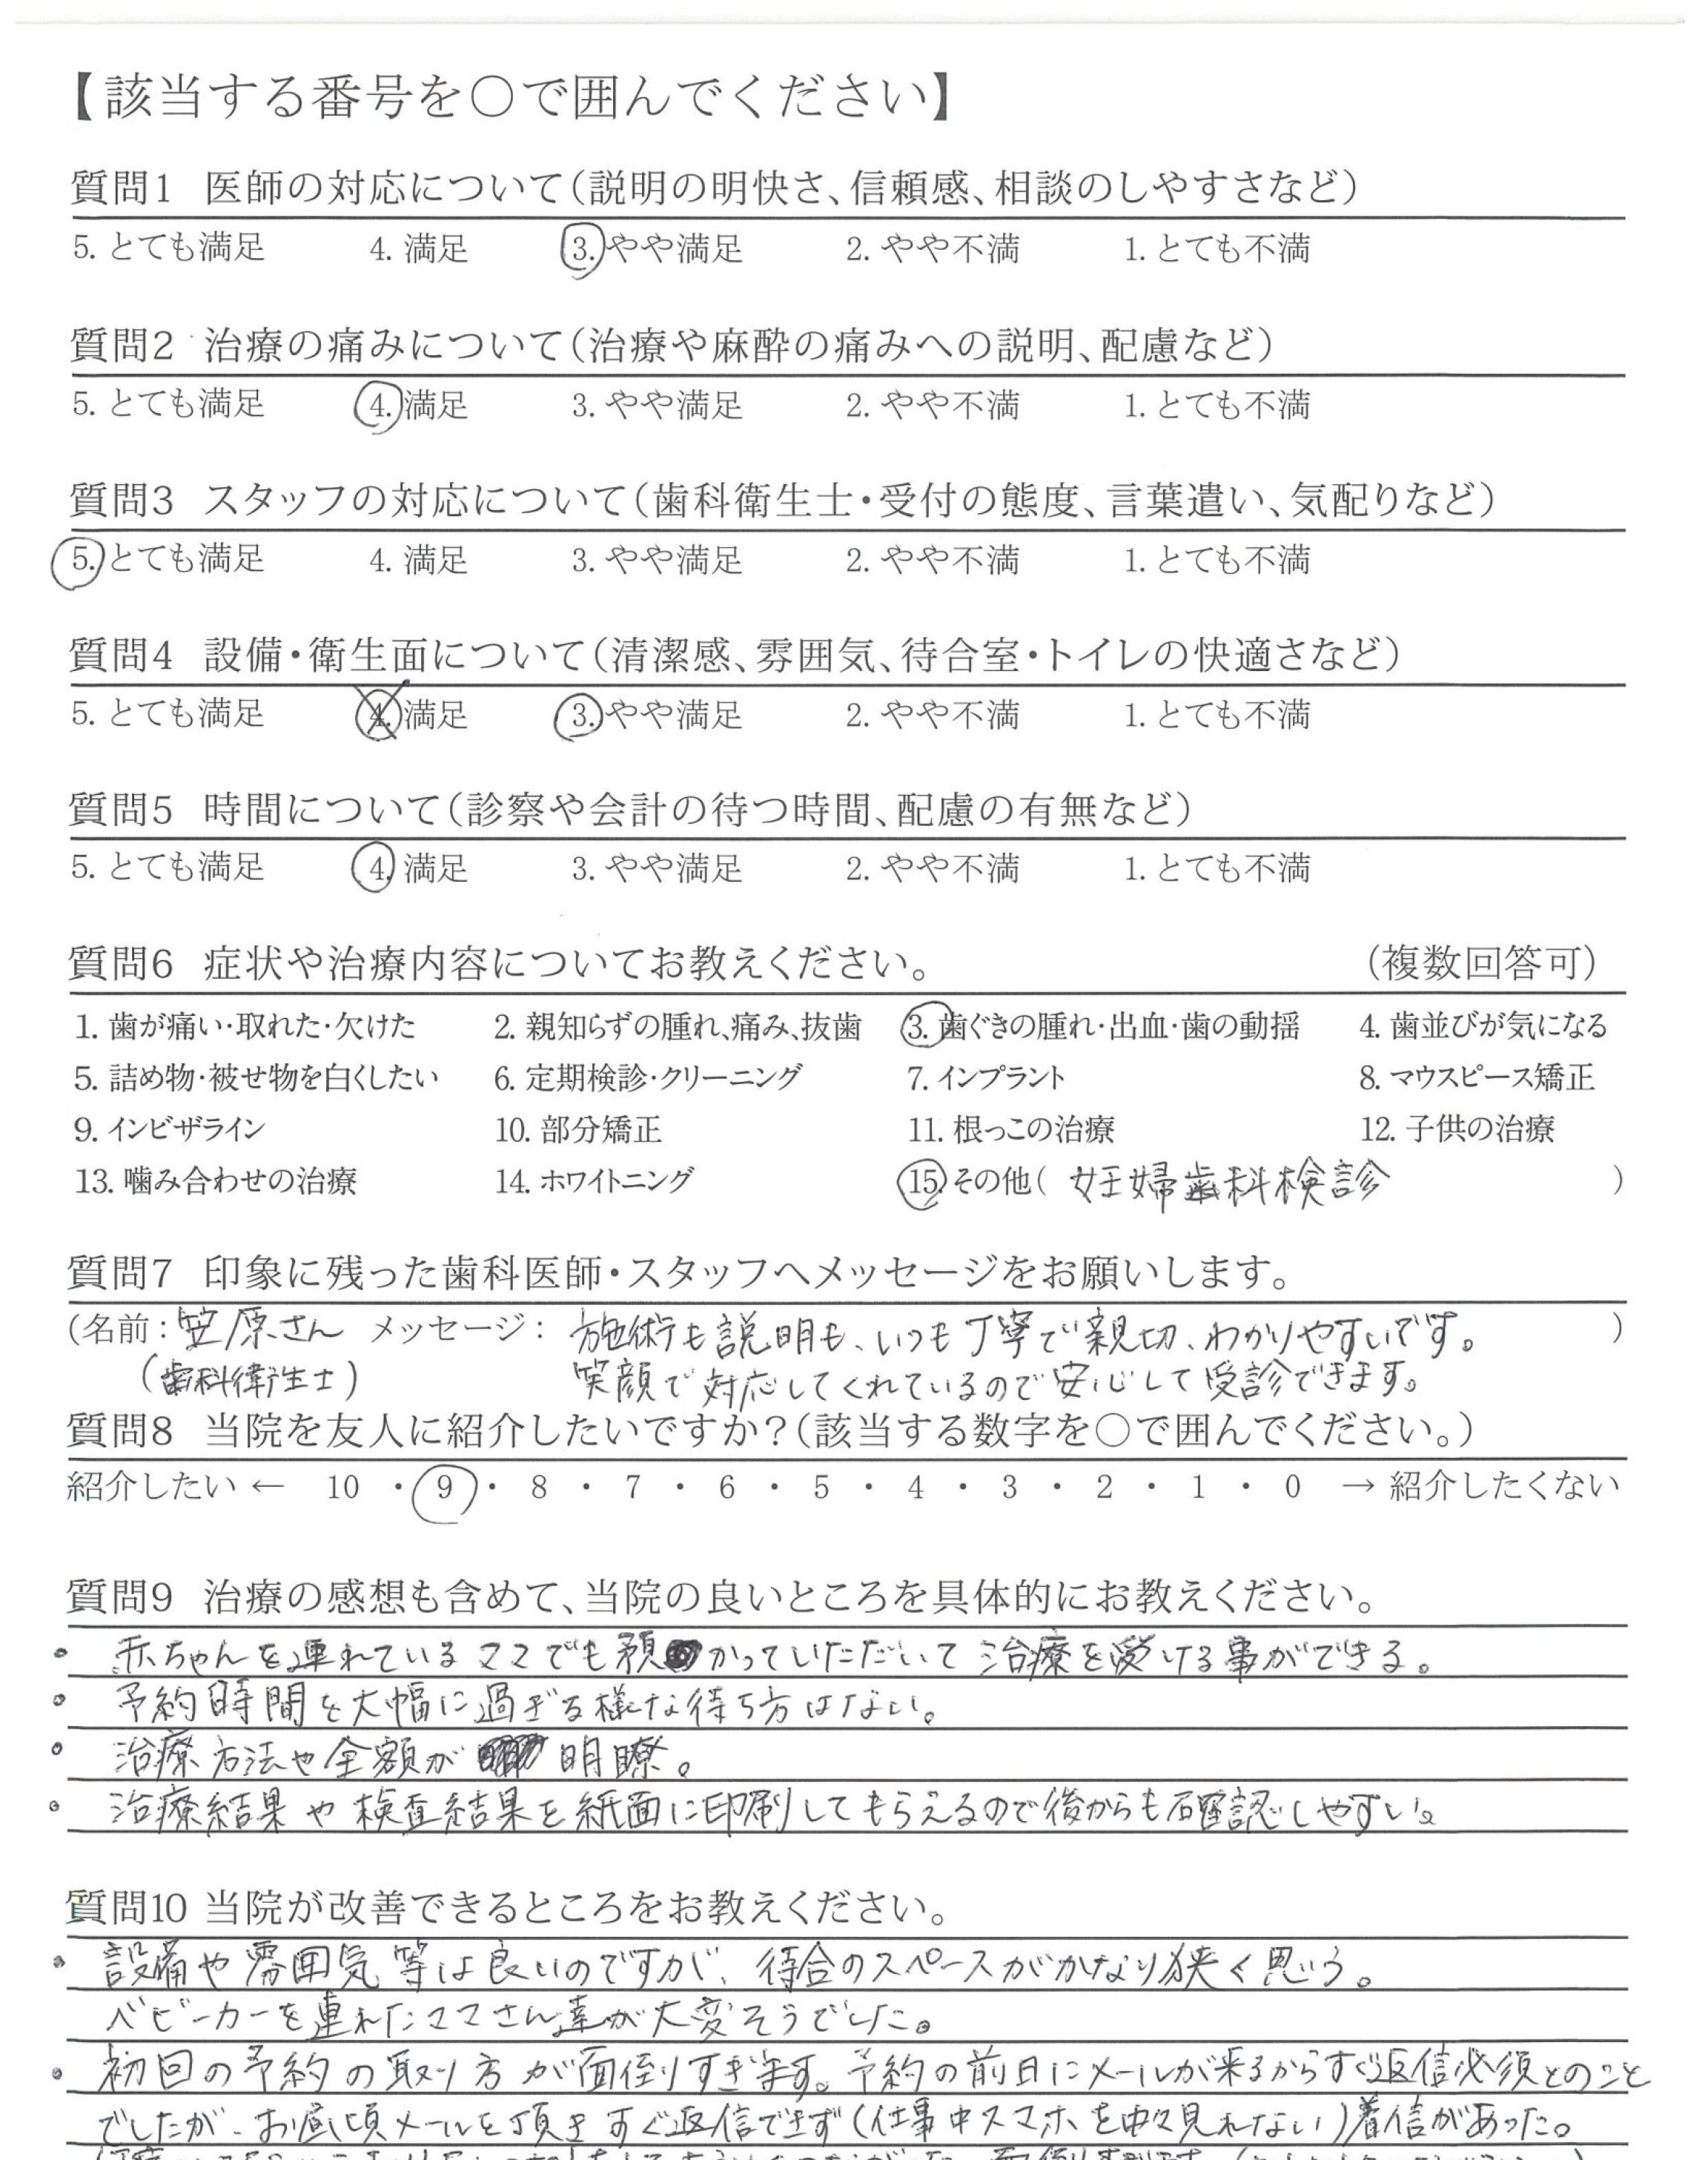 【該当する番号を〇で囲んでください】
質問1 医師の対応について(説明の明快さ、信頼感、相談のしやすさなど)
5. とても満足 4. 満足 3. やや満足 2. やや不満 1. とても不満
質問2 治療の痛みについて(治療や麻酔の痛みへの説明、配慮など)
5. とても満足 4. 満足 3. やや満足 2. やや不満 1. とても不満
質問3 スタッフの対応について(歯科衛生士・受付の態度、言葉遣い、気配りなど)
5. とても満足 4. 満足 3. やや満足 2. やや不満 1. とても不満
質問4 設備・衛生面について(清潔感、雰囲気、待合室・トイレの快適さなど)
5. とても満足 4. 満足 3. やや満足 2. やや不満 1. とても不満
質問5 時間について(診察や会計の待つ時間、配慮の有無など)
5. とても満足 4. 満足 3. やや満足 2. やや不満 1. とても不満
質問6 症状や治療内容についてお教えください。 (複数回答可)
1. 歯が痛い・取れた・欠けた 2. 親知らずの腫れ、痛み、抜歯 3. 歯ぐきの腫れ・出血・歯の動揺 4. 歯並びが気になる
5. 詰め物・被せ物を白くしたい 6. 定期検診・クリーニング 7. インプラント 8. マウスピース矯正
9. インビザライン 10. 部分矯正 11. 根っこの治療 12. 子供の治療
13. 噛み合わせの治療 14. ホワイトニング 15. その他( 妊婦歯科検診 )
質問7 印象に残った歯科医師・スタッフへメッセージをお願いします。
(名前: 笠原さん メッセージ: 施術も説明も、いつも丁寧で親切、わかりやすいです。 )
(歯科衛生士) 笑顔で対応してくれているので安心して受診できます。
質問8 当院を友人に紹介したいですか?(該当する数字を〇で囲んでください。)
紹介したい ← 10 ・ 9 ・ 8 ・ 7 ・ 6 ・ 5 ・ 4 ・ 3 ・ 2 ・ 1 ・ 0 → 紹介したくない
質問9 治療の感想も含めて、当院の良いところを具体的にお教えください。
• 赤ちゃんを連れているママでも預かっていただいて治療を受ける事ができる。
• 予約時間を大幅に過ぎる様な待ち方はない。
• 治療方法や金額が明瞭。
• 治療結果や検査結果を紙面に印刷してもらえるので後からも確認しやすい。
質問10 当院が改善できるところをお教えください。
• 設備や雰囲気等は良いのですが、待合のスペースがかなり狭く思う。
ベビーカーを連れたママさん達が大変そうでした。
• 初回の予約の取り方が面倒りすぎます。予約の前日にメールが来るからすぐ返信必須とのこと
でしたが、お昼頃メールを頂きすぐ返信できず(仕事中スマホを中々見れない)着信があった。